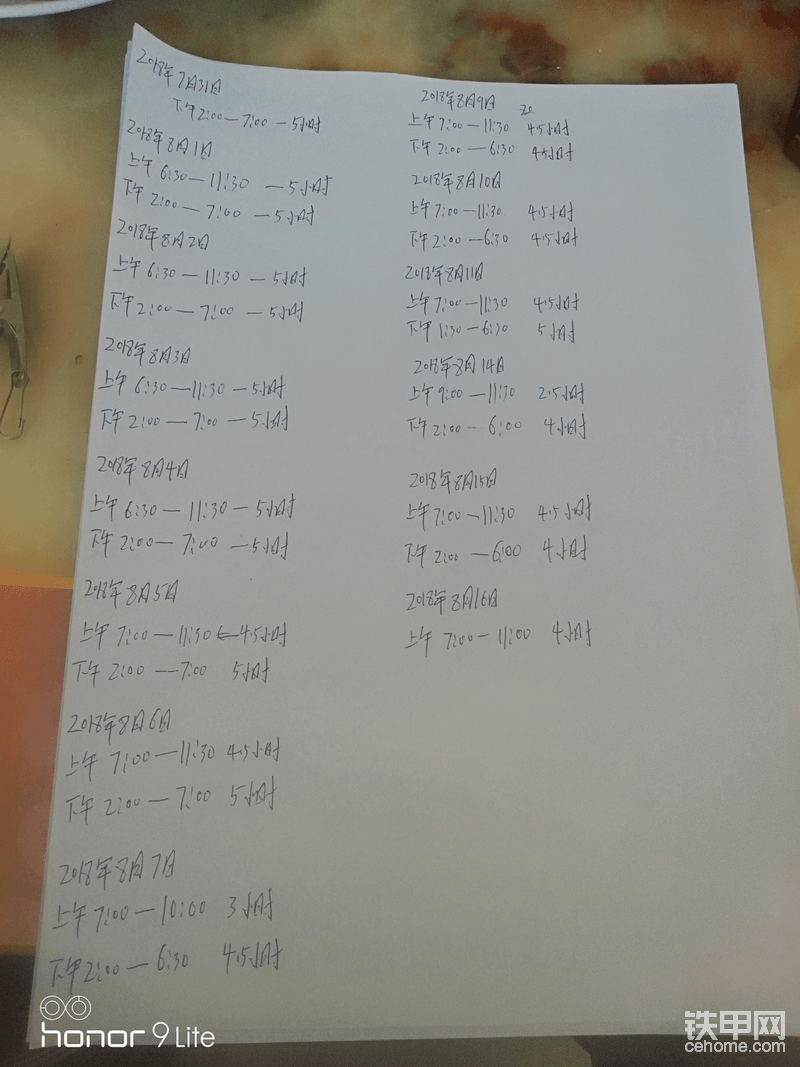 2018年7月31日
下午2:00—7:00—5小时
2018年8月1日
上午6:30—11:30—5小时
下午2:00—7:00—5小时
2018年8月2日
上午6:30—11:30—5小时
下午2:00—7:00—5小时
2018年8月3日
上午6:30—11:30—5小时
下午2:00—7:00—5小时
2018年8月4日
上午6:30—11:30—5小时
下午2:00—7:00—5小时
2018年8月5日
上午7:00—11:30—4.5小时
下午2:00—7:00 5小时
2018年8月6日
上午7:00—11:30 4.5小时
下午2:00—7:00 5小时
2018年8月7日
上午7:00—10:00 3小时
下午2:00—6:30 4.5小时
2018年8月9日
上午7:00—11:30 4.5小时
下午2:00—6:30 4.5小时
2018年8月10日
上午7:00—11:30 4.5小时
下午2:00—6:30 4.5小时
2018年8月11日
上午7:00—11:30 4.5小时
下午1:30—6:30 5小时
2018年8月14日
上午9:00—11:30 2.5小时
下午2:00—6:00 4小时
2018年8月15日
上午7:00—11:30 4.5小时
下午2:00—6:00 4小时
2018年8月16日
上午7:00—11:00 4小时
honor 9 Lite
铁甲网
cehome.com